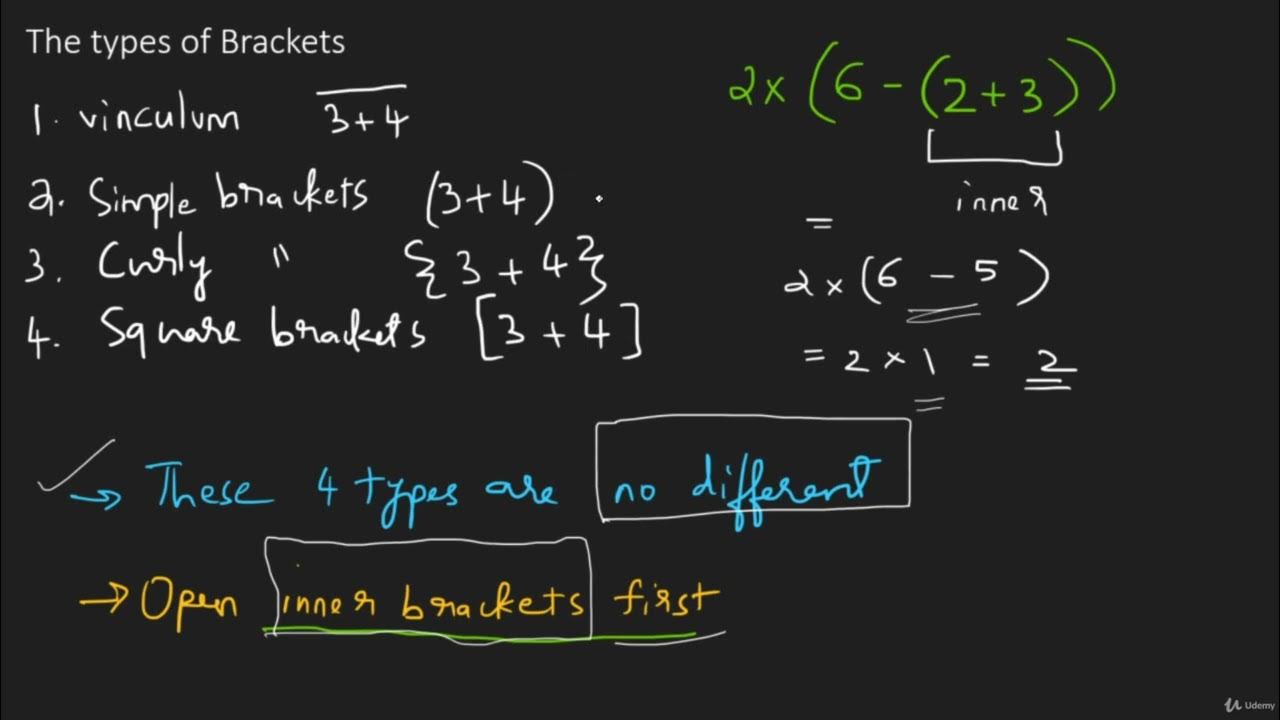 The types of Brackets
1. vinculum 3+4
2. Simple brackets (3+4)
3. Curly " {3+4}
4. Square brackets [3+4]
→ These 4 types are no different
→ Open inner brackets first
2×(6-(2+3))
inner
=
2×(6-5)
= 2×1 = 2
Udemy